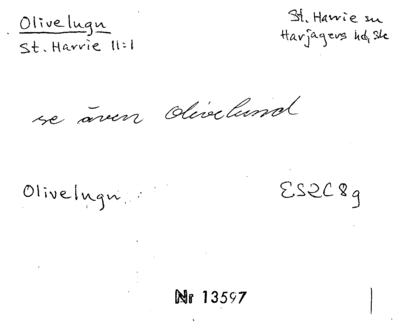 Olivelugn
St. Harrie 11:1
St. Harrie sn
Harjagers hd, Sk
se även Olivelund
Olivelugn
ES2C8g
Nr 13597